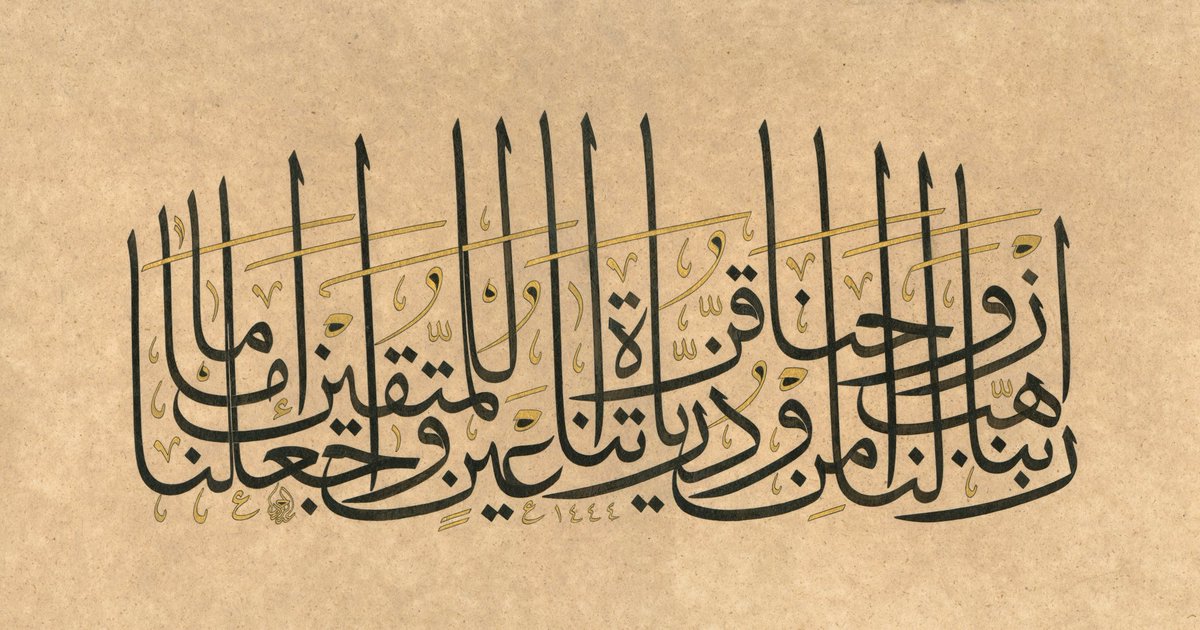 ربنا هب لنا من أزواجنا وذرياتنا قرة أعين واجعلنا للمتقين إماما
١٤٤٤